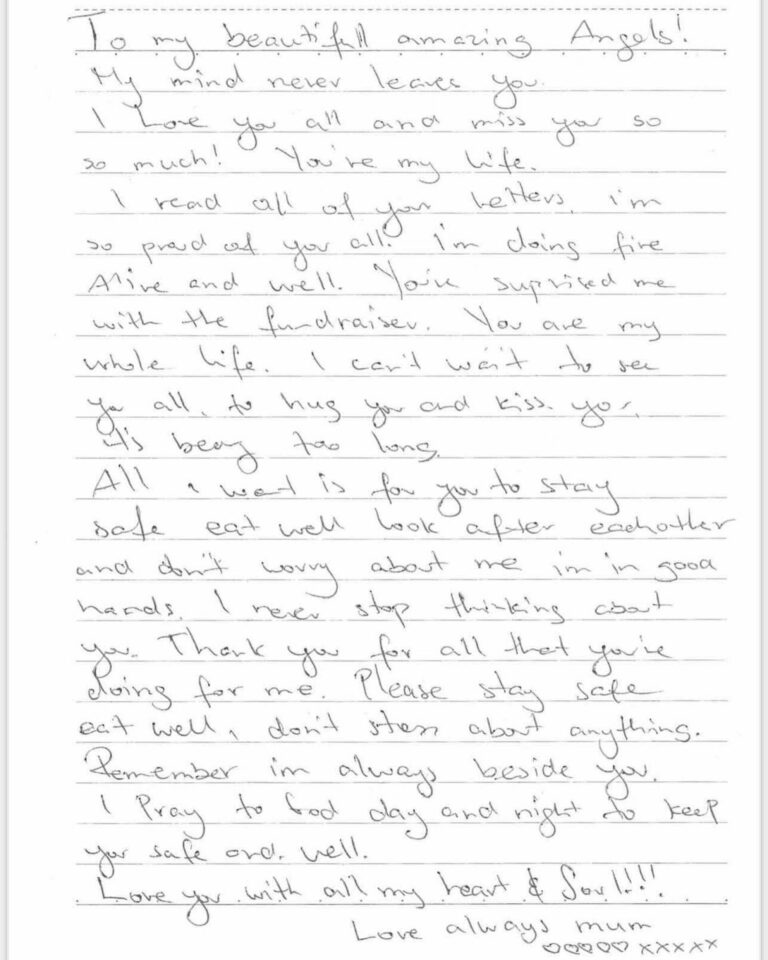 To my beautifull amazing Angels!
My mind never leaves you.
I Love you all and miss you so
so much! You're my life.
I read all of your letters, i'm
so proud of you all. i'm doing fine
Alive and well. You've suprised me
with the fundraiser. You are my
whole life. I can't wait to see
you all, to hug you and kiss you,
it's being too long.
All i want is for you to stay
safe eat well look after eachother
and don't worry about me i'm in good
hands. I never stop thinking about
you. Thank you for all that you're
doing for me. Please stay safe
eat well, don't stress about anything.
Remember im always beside you.
I Pray to God day and night to keep
you safe and. well.
Love you with all my heart & Soul!!!
Love always mum
♡♡♡♡♡ xxxxx